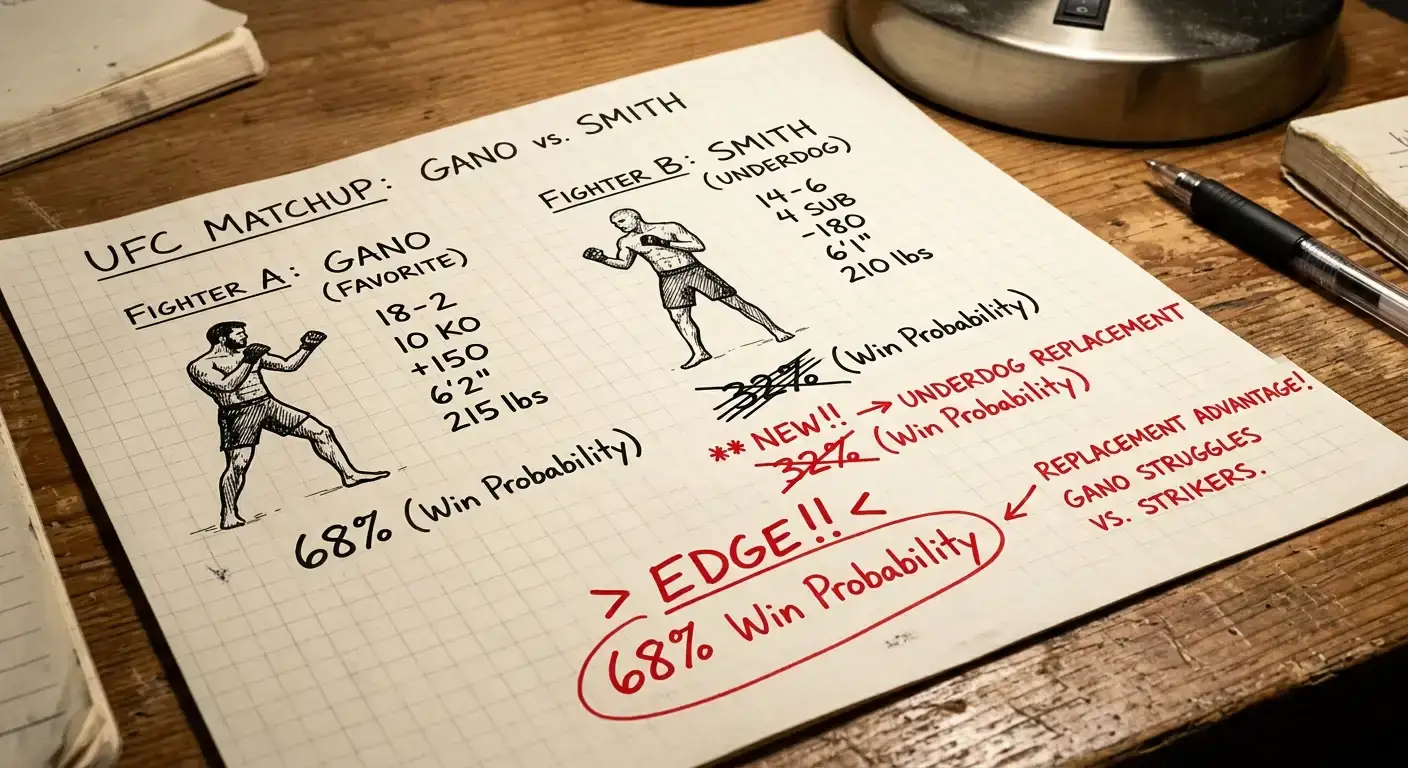 UFC MATCHUP: GANO vs. SMITH
FIGHTER A: GANO
(FAVORITE)
18-2
10 KO
+150
6'2"
215 lbs
68% (Win Probability)
FIGHTER B: SMITH
(UNDERDOG)
14-6
4 SUB
-180
6'1"
210 lbs
32% (Win Probability)
** NEW!! → UNDERDOG REPLACEMENT
32% (Win Probability)
> EDGE!! <
68% Win Probability
REPLACEMENT ADVANTAGE!
GANO STRUGGLES
VS. STRIKERS.